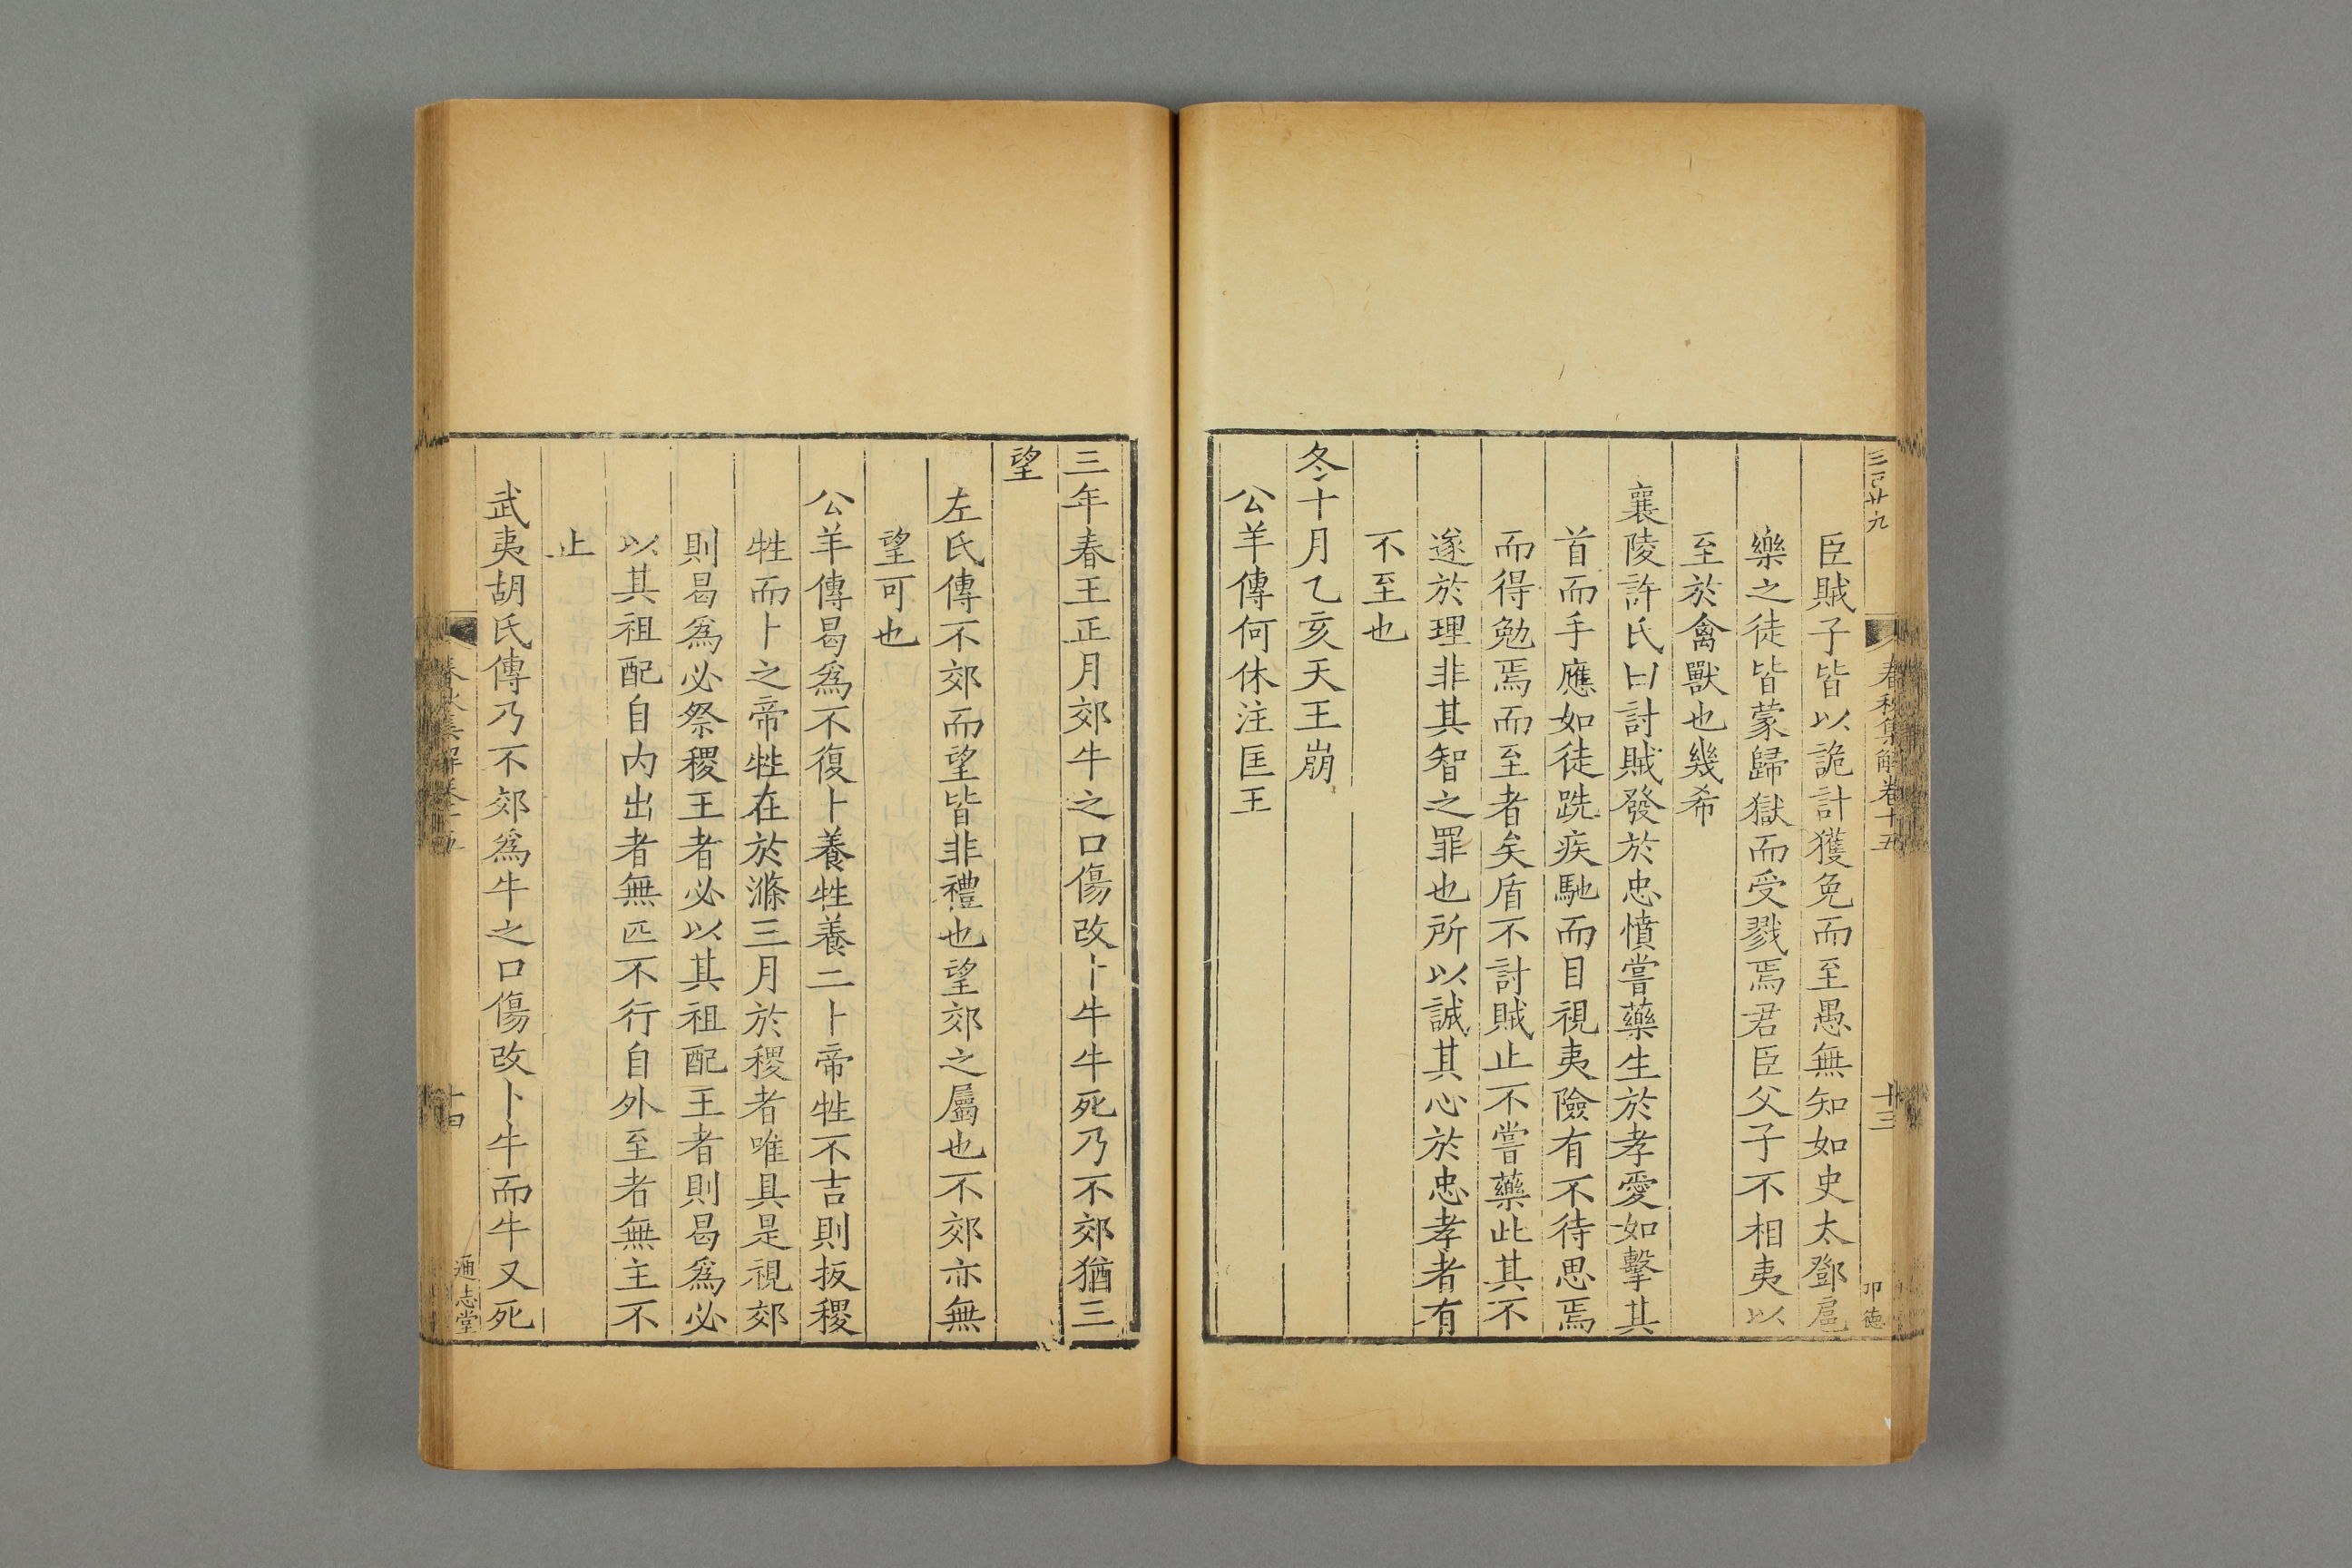 春秋集解卷十五
十三
臣賊子皆以詭計獲免而至愚無知如史太鄧扈
樂之徒皆蒙歸獄而受戮焉君臣父子不相夷以
至於禽獸也幾希
襄陵許氏曰討賊發於忠憤嘗藥生於孝愛如擊其
首而手應如徒跣疾馳而目視夷險有不待思焉
而得勉焉而至者矣盾不討賊止不嘗藥此其不
遂於理非其智之罪也所以誠其心於忠孝者有
不至也
冬十月乙亥天王崩
公羊傳何休注匡王
三年春王正月郊牛之口傷改卜牛牛死乃不郊猶三
望
左氏傳不郊而望皆非禮也望郊之屬也不郊亦無
望可也
公羊傳曷爲不復卜養牲養二卜帝牲不吉則扳稷
牲而卜之帝牲在於滌三月於稷者唯具是視郊
則曷爲必祭稷王者必以其祖配王者則曷爲必
以其祖配自内出者無匹不行自外至者無主不
止
武夷胡氏傳乃不郊爲牛之口傷改卜牛而牛又死
春秋集解卷十五
十四
通志堂